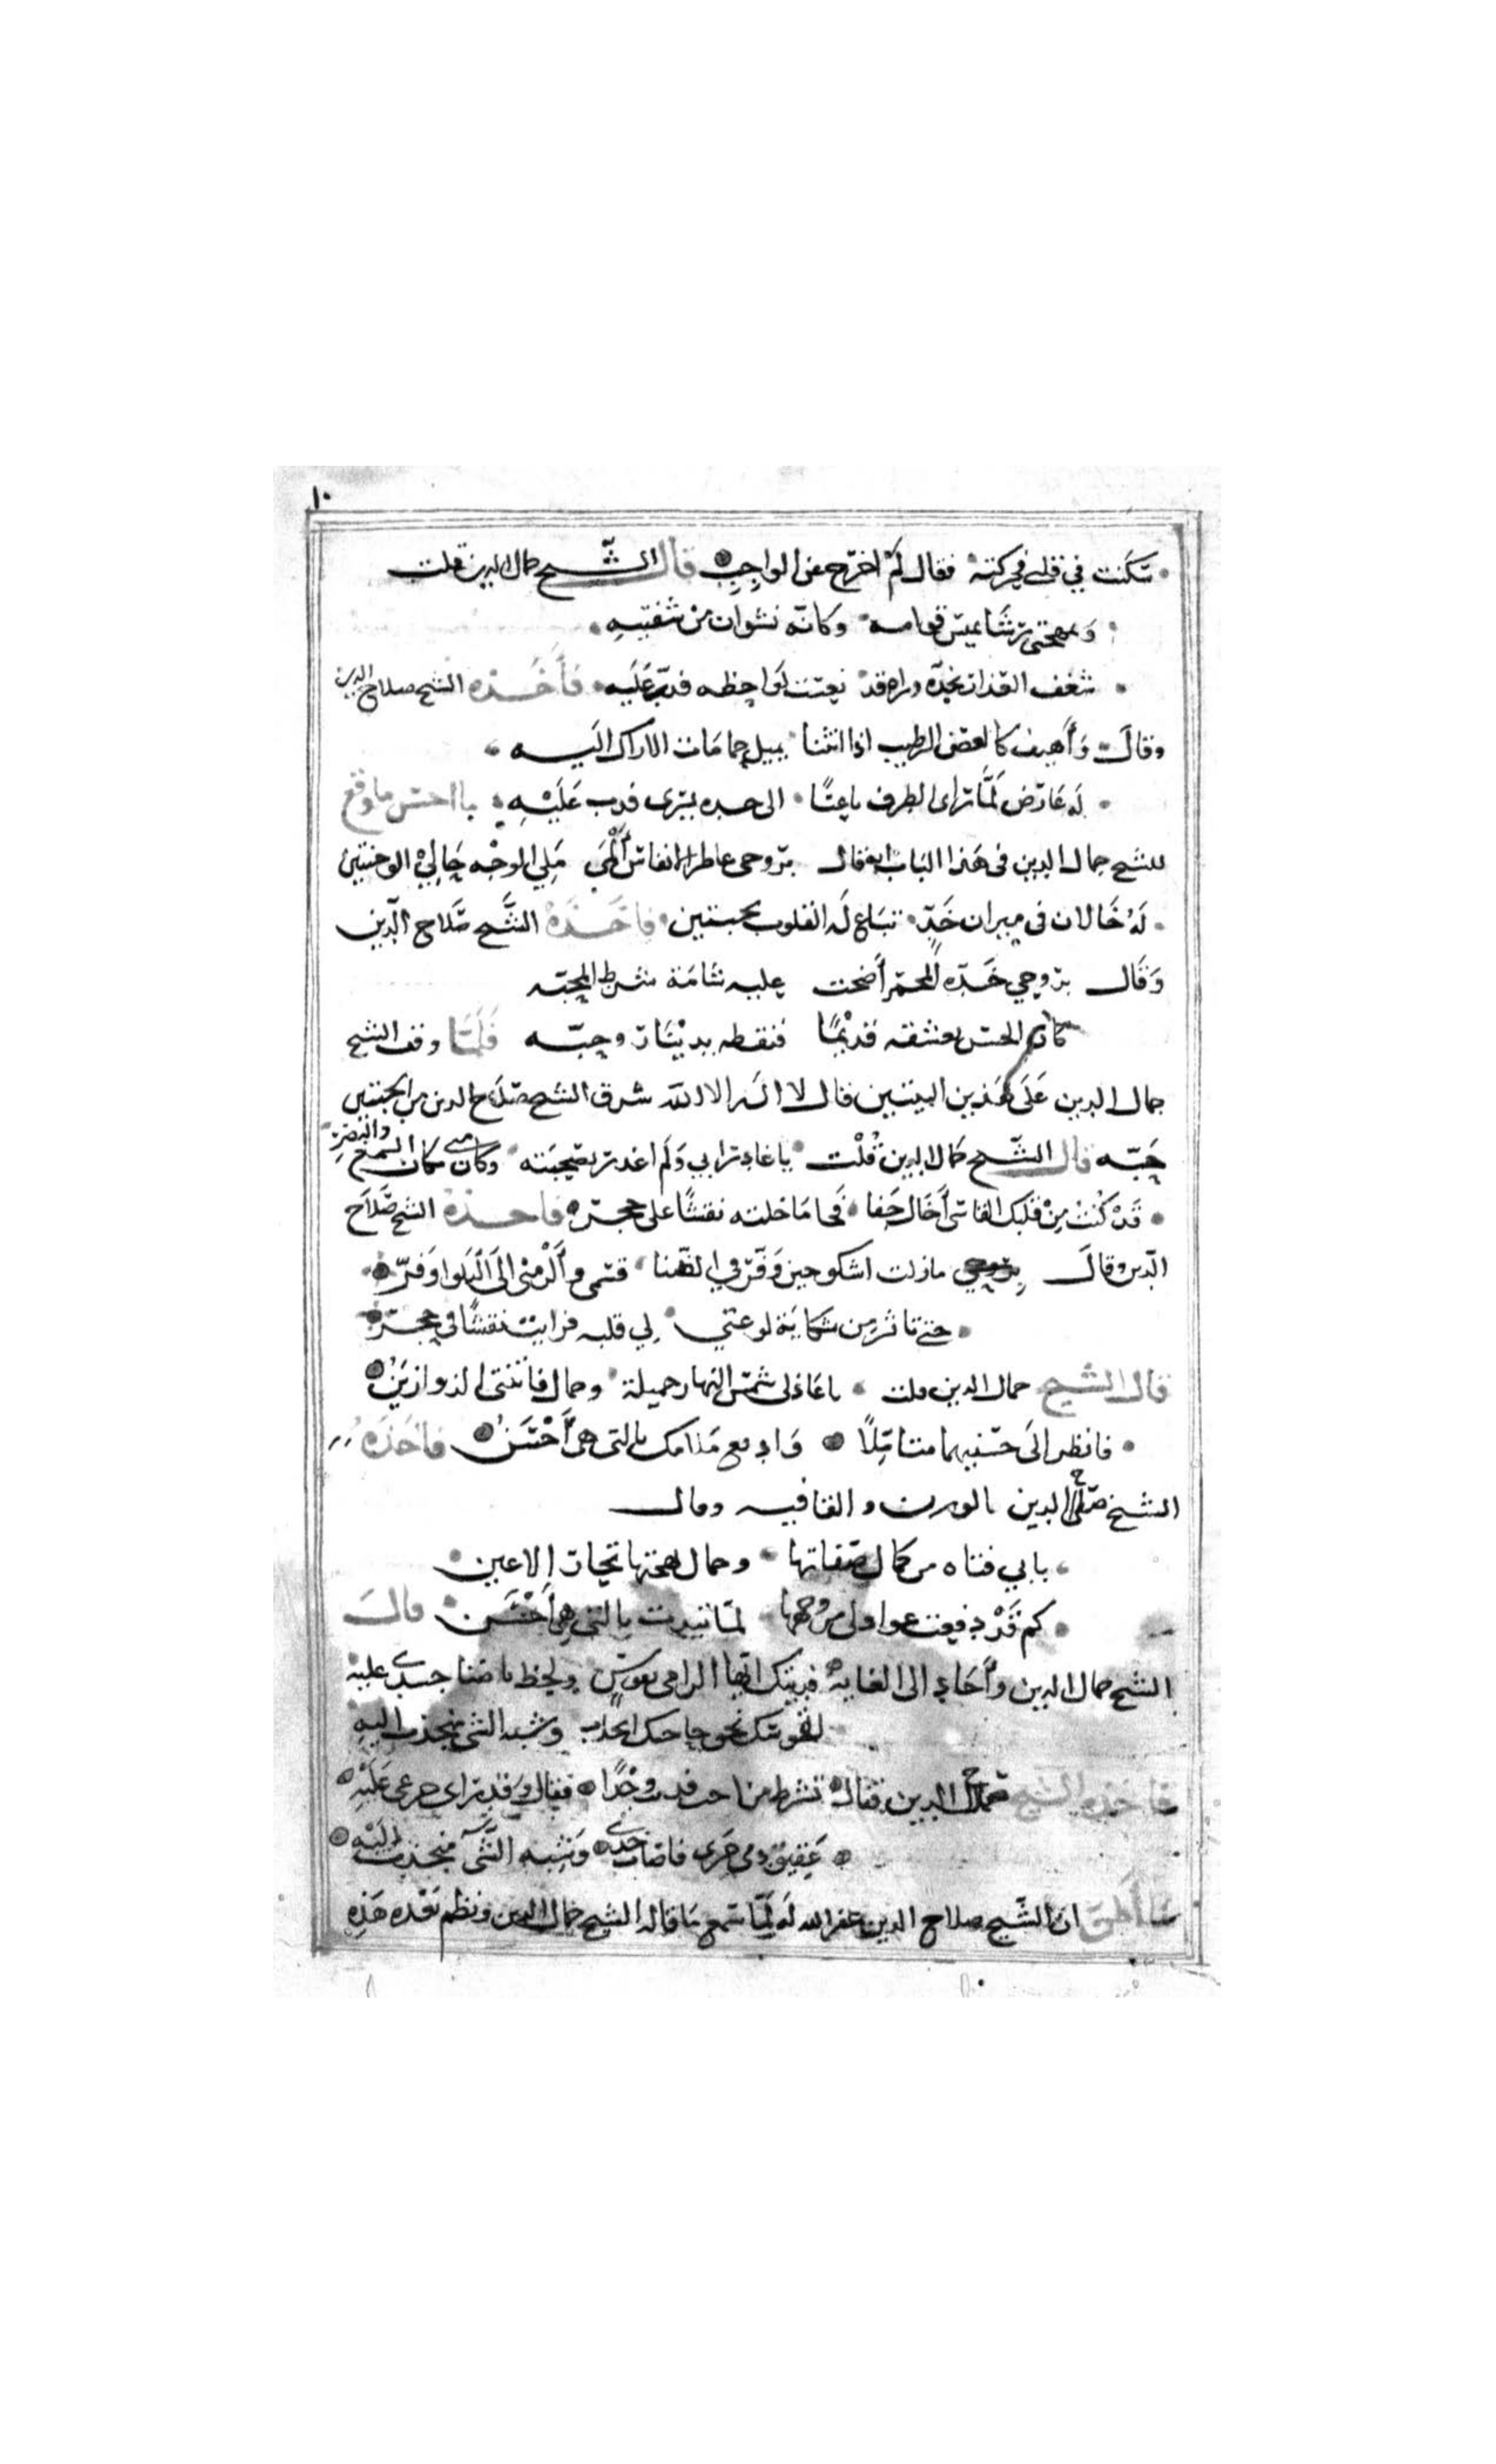 ١٠
سكنت في قلبي فحركته فقال لم اخرج عن الواجب قال الشيخ جمال الدين قلت
وبمهجتي رشا يميس قوامه وكانه نشوان من شفتيه
شغف العذار بخده وراه قد نعست لواحظه فدب عليه فأخذه الشيخ صلاح الدين
وقال وأهيف كالغصن الرطيب اذا انثنا يميل حمامات الاراك اليه
له عارض لما راى الطرف ناعسًا الى خده يسرى فدب عليه يا احسن ما وقع
للشيخ جمال الدين في هذا الباب فقال بروحي عاطر الانفاس ألمى ملي الوجه حالي الوجنتين
له خالان في ميران خد تباع له القلوب بحبتين فاخذه الشيخ صلاح الدين
وقال بروحي خده المحمر أضحت عليه شامة شرط المحبه
كان الحسن يعشقه قديمًا فنقطه بدينار وحبه فلما وقف الشيخ
جمال الدين على هذين البيتين قال لا اله الا الله سرق الشيخ صلاح الدين من الحبتين
حبه قال الشيخ جمال الدين قلت يا غادرا بي ولم اغدر بصحبته وكان مني مكان السمع والبصر
قد كنت من قلبك القاسي أخال جفا فجا ما خلته نقشًا على حجر فاخذه الشيخ صلاح
الدين وقال مازلت اشكو حين وفر في الضنا قسمي وألزمني الى البلوا وفر
حتى تاثر من شكاية لوعتي لي قلبه فرايت نقشًا في حجر
قال الشيخ جمال الدين قلت يا عاذلي شمس النهار جميلة وجمال فاتنتي الذ وازين
فانظر الى حسنيهما متاملًا وادفع ملامك بالتي هي أحسن فاخذه
الشيخ صلاح الدين بالوزن والقافيه وقال
بابي فتاه من كمال صفاتها وجمال بهجتها تحار الاعين
كم قد دفعت عواذلي من وجهها لما تبدت بالتي هي أحسن قال
الشيخ جمال الدين وأجاد الى الغايه فديتك ايها الرامي بقوس ولحظ يا ضنا جسدي عليه
لقوسك نحو حاجبك انجذاب وشبه الشي منجذب اليه
فاخذه الشيخ صلاح الدين فقال تشرط من احب فذبت وجدًا فقال وقد راى جزعي عليه
عقيق دمي جرى فاصاب خدي وشبه الشي منجذب اليه
ما أظن ان الشيخ صلاح الدين غفر الله له لما سمع ما قاله الشيخ جمال الدين ونظم بعده هذه